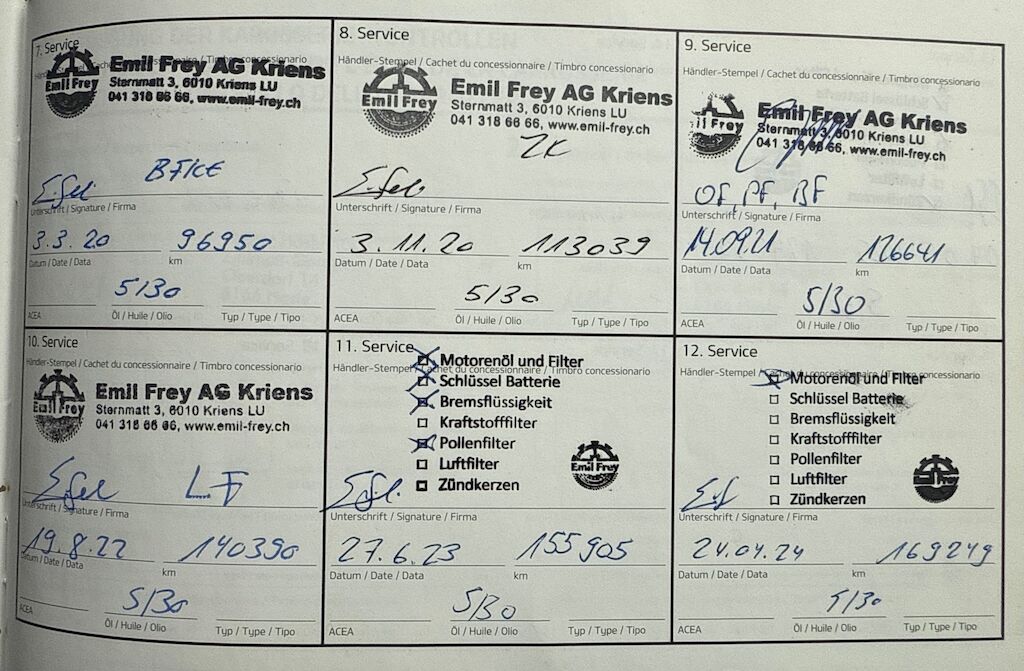 7. Service
Händler-Stempel / Cachet du concessionnaire / Timbro concessionario
Emil Frey
Emil Frey AG Kriens
Sternmatt 3, 6010 Kriens LU
041 318 66 66, www.emil-frey.ch
Unterschrift / Signature / Firma
3.3.20 96950
Datum / Date / Data km
5/30
ACEA Öl / Huile / Olio Typ / Type / Tipo
8. Service
Händler-Stempel / Cachet du concessionnaire / Timbro concessionario
Emil Frey
Emil Frey AG Kriens
Sternmatt 3, 6010 Kriens LU
041 318 66 66, www.emil-frey.ch
ZK
Unterschrift / Signature / Firma
3.11.20 113039
Datum / Date / Data km
5/30
ACEA Öl / Huile / Olio Typ / Type / Tipo
9. Service
Händler-Stempel / Cachet du concessionnaire / Timbro concessionario
Emil Frey
Emil Frey AG Kriens
Sternmatt 3, 6010 Kriens LU
041 318 66 66, www.emil-frey.ch
OF, PF, BF
Unterschrift / Signature / Firma
14.09.21 126641
Datum / Date / Data km
5/30
ACEA Öl / Huile / Olio Typ / Type / Tipo
10. Service
Händler-Stempel / Cachet du concessionnaire / Timbro concessionario
Emil Frey
Emil Frey AG Kriens
Sternmatt 3, 6010 Kriens LU
041 318 66 66, www.emil-frey.ch
LF
Unterschrift / Signature / Firma
19.8.22 140390
Datum / Date / Data km
5/30
ACEA Öl / Huile / Olio Typ / Type / Tipo
11. Service
Händler-Stempel / Cachet du concessionnaire / Timbro concessionario
Motorenöl und Filter
Schlüssel Batterie
Bremsflüssigkeit
Kraftstofffilter
Pollenfilter
Luftfilter
Zündkerzen
Emil Frey
Unterschrift / Signature / Firma
27.6.23 155905
Datum / Date / Data km
5/30
ACEA Öl / Huile / Olio Typ / Type / Tipo
12. Service
Händler-Stempel / Cachet du concessionnaire / Timbro concessionario
Motorenöl und Filter
Schlüssel Batterie
Bremsflüssigkeit
Kraftstofffilter
Pollenfilter
Luftfilter
Zündkerzen
Emil Frey
Unterschrift / Signature / Firma
24.04.24 169249
Datum / Date / Data km
5/30
ACEA Öl / Huile / Olio Typ / Type / Tipo